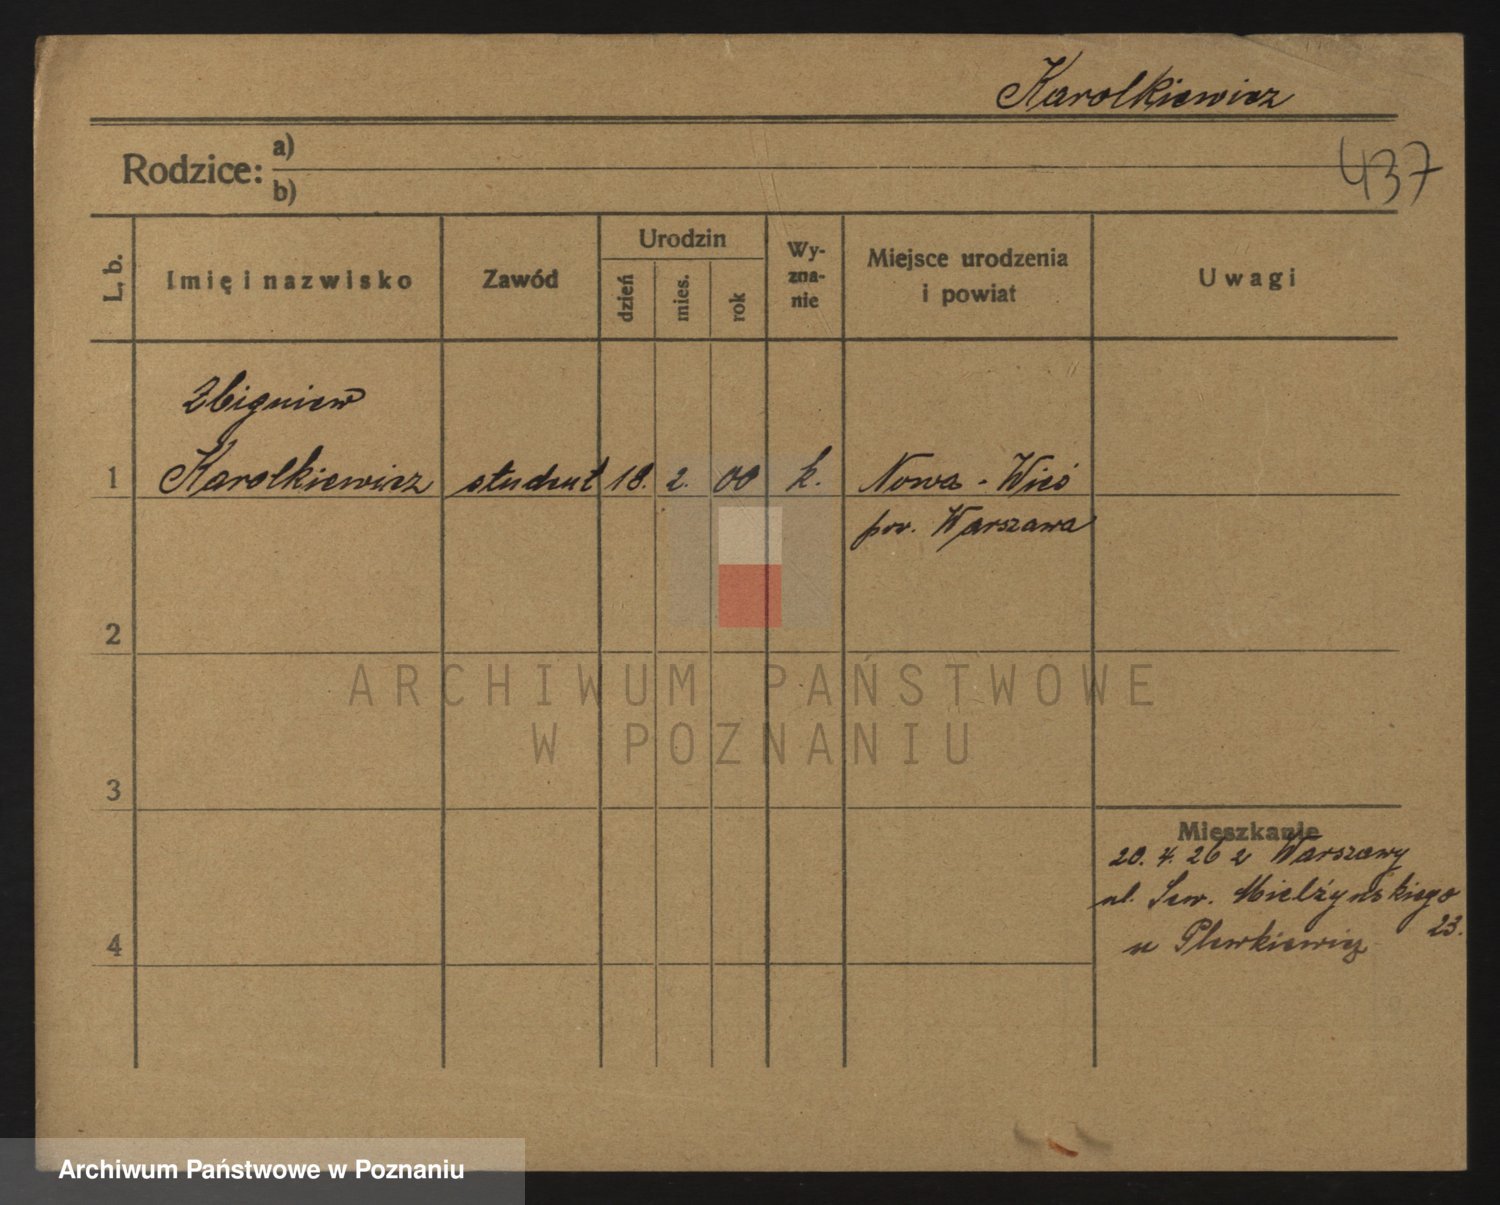 Karolkiewicz
437
Rodzice: a)
b)
L. b.
Imię i nazwisko
Zawód
Urodzin
dzień
mies.
rok
Wy-
zna-
nie
Miejsce urodzenia
i powiat
Uwagi
Zbigniew
1 Karolkiewicz student 18. 2. 00 k. Nowa-Wieś
pow. Warszawa
2
ARCHIWUM PAŃSTWOWE
W POZNANIU
3
Mieszkanie
20. 4. 26 z Warszawy
ul. Sew. Mielżyńskiego
23.
4
u Plewkiewicz
Archiwum Państwowe w Poznaniu